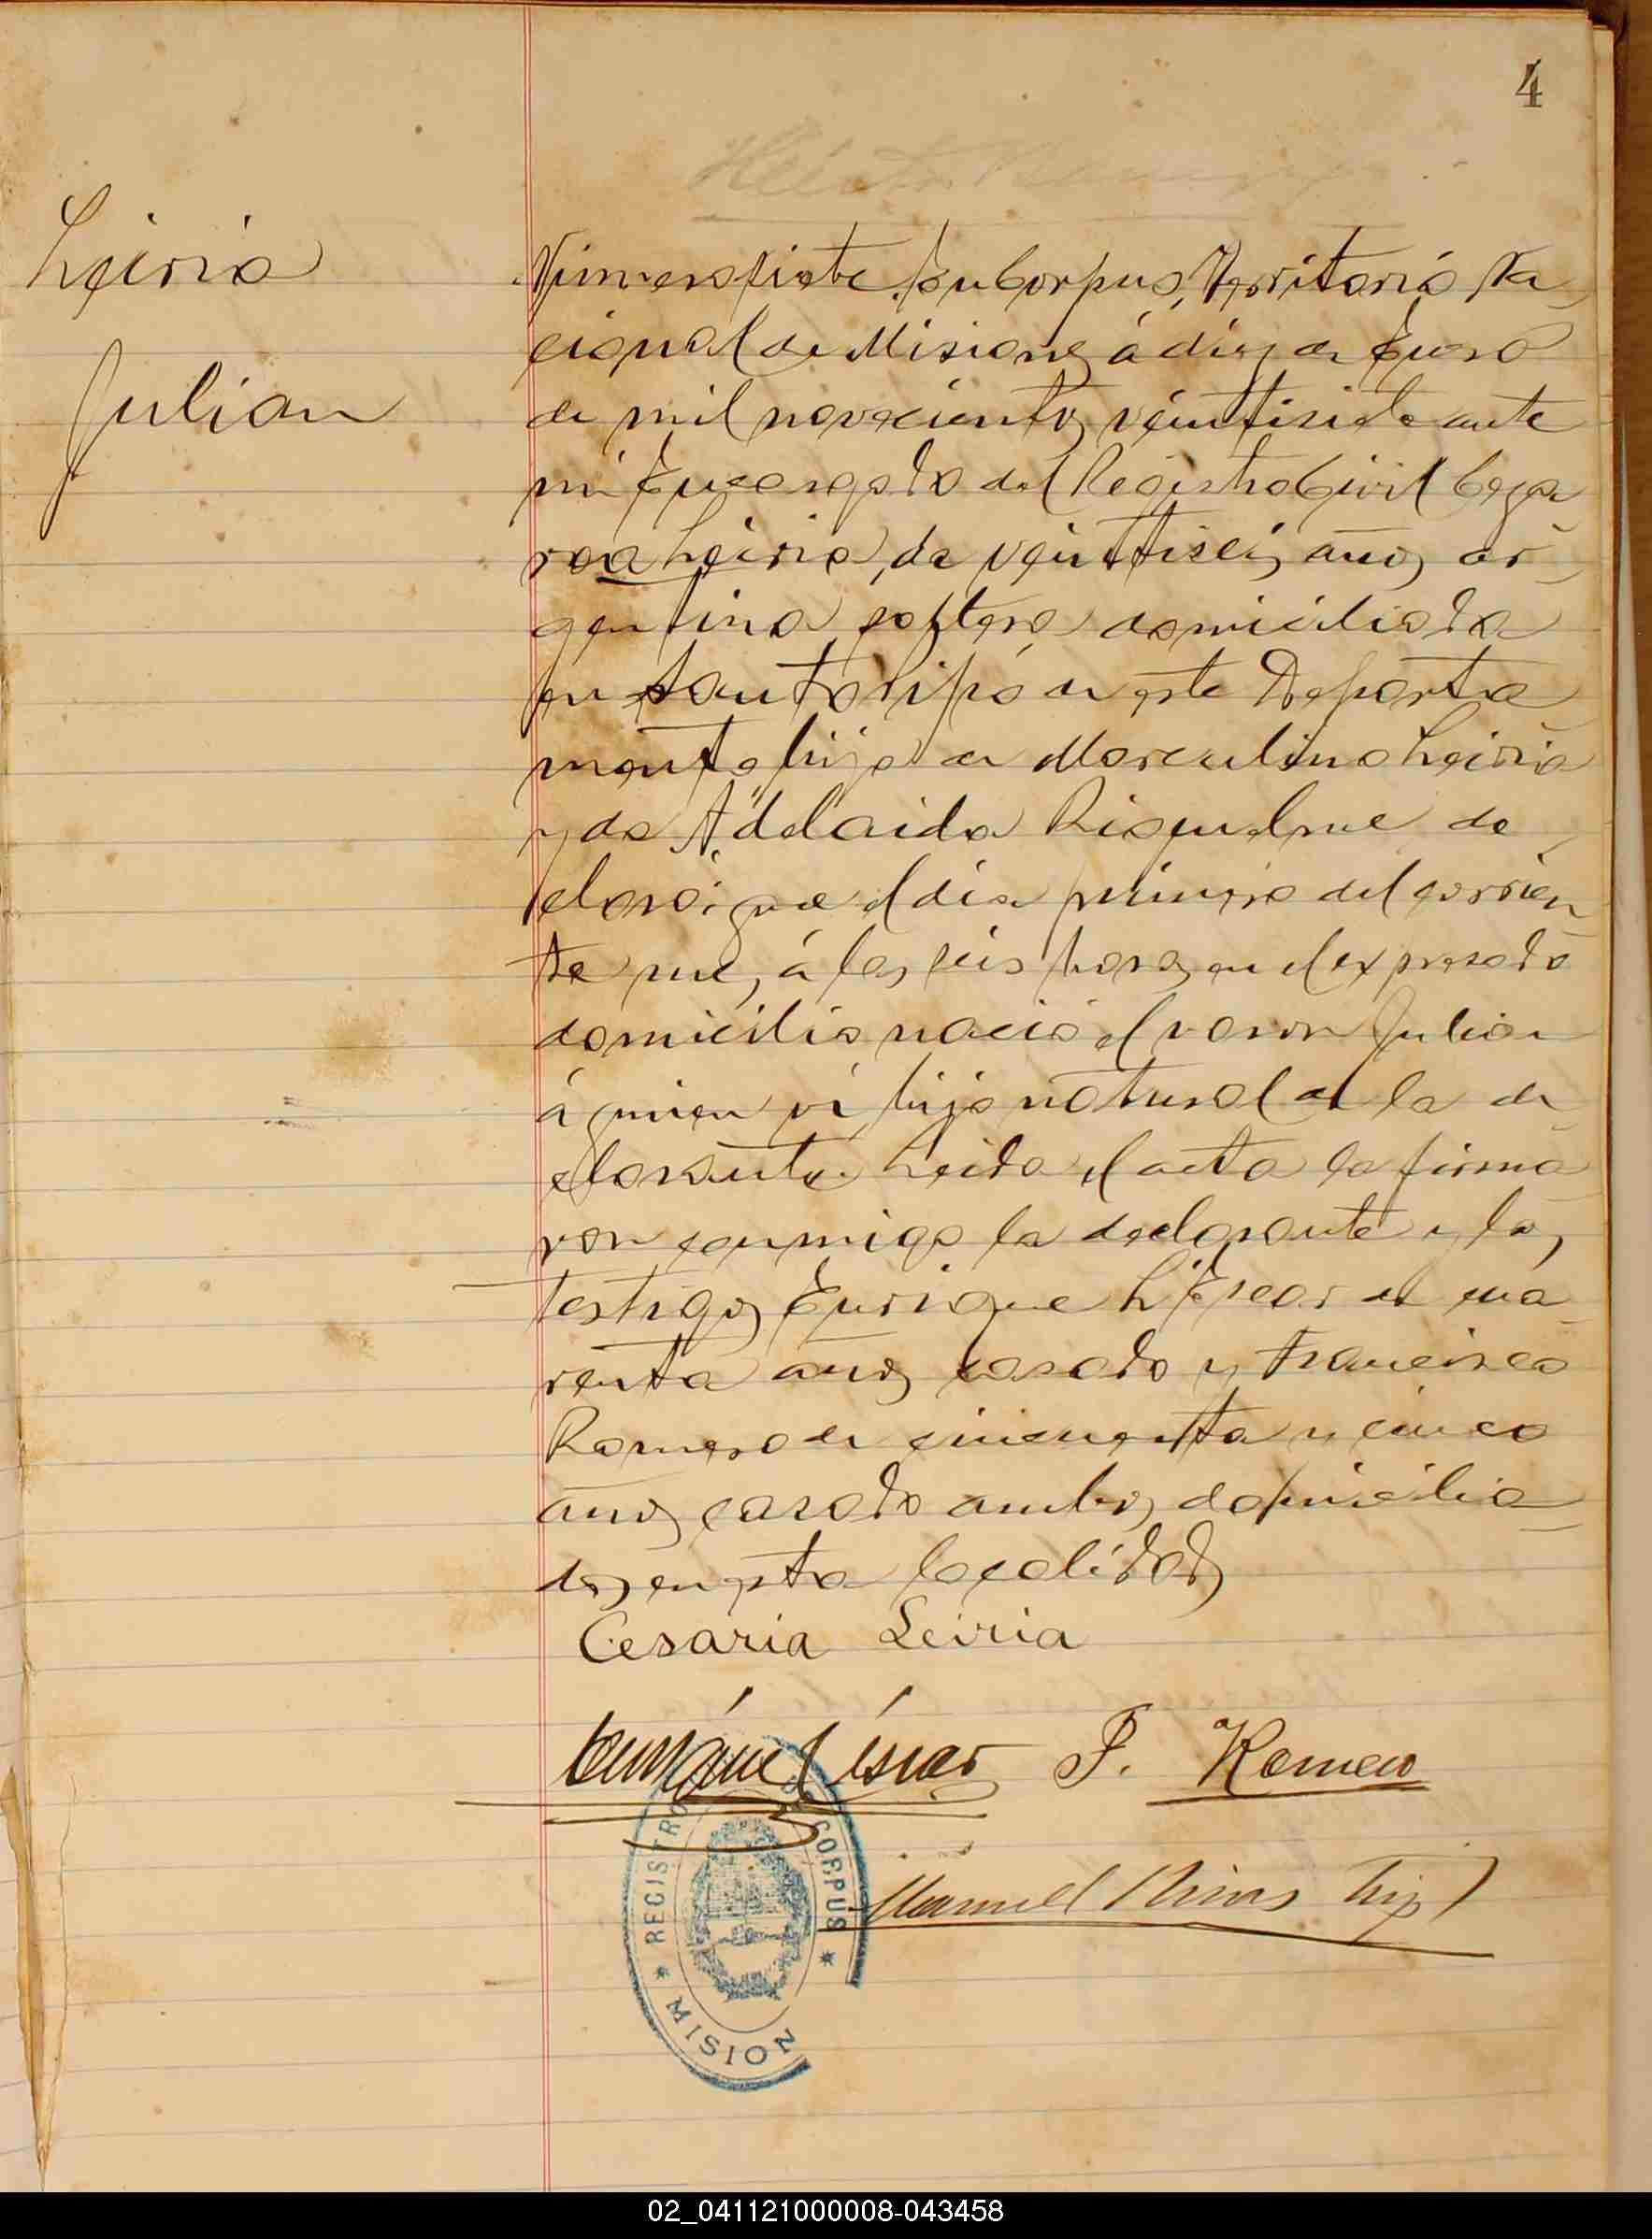 4
Leiria
Julian
Numero siete. En Corpus, Territorio Na
cional de Misiones á diez de Enero
de mil novecientos veintisiete ante
mi Encargado del Registro Civil Cesa
rea Leiria, de veintiseis años, ar
gentina, soltera, domiciliada
en Santo Pipó de este Departa
mento hija de Marculino Leiria
y de Adelaida Riquelme de
claró: que el dia primero del corrien
te mes, á las seis horas, en el expresado
domicilio nació el varon Julian
á quien vi, hijo natural de la de
clarante. Leida el acta la firma
ron conmigo la declarante y los
testigos Enrique L. Escar de cua
renta años, casado y Francisco
Romero de cincuenta y cinco
años, casado ambos domicilia
dos en esta localidad
Cesaria Leiria
F. Romero
Manuel Rivas
REGISTRO CORPUS
* MISION *
02_041121000008-043458